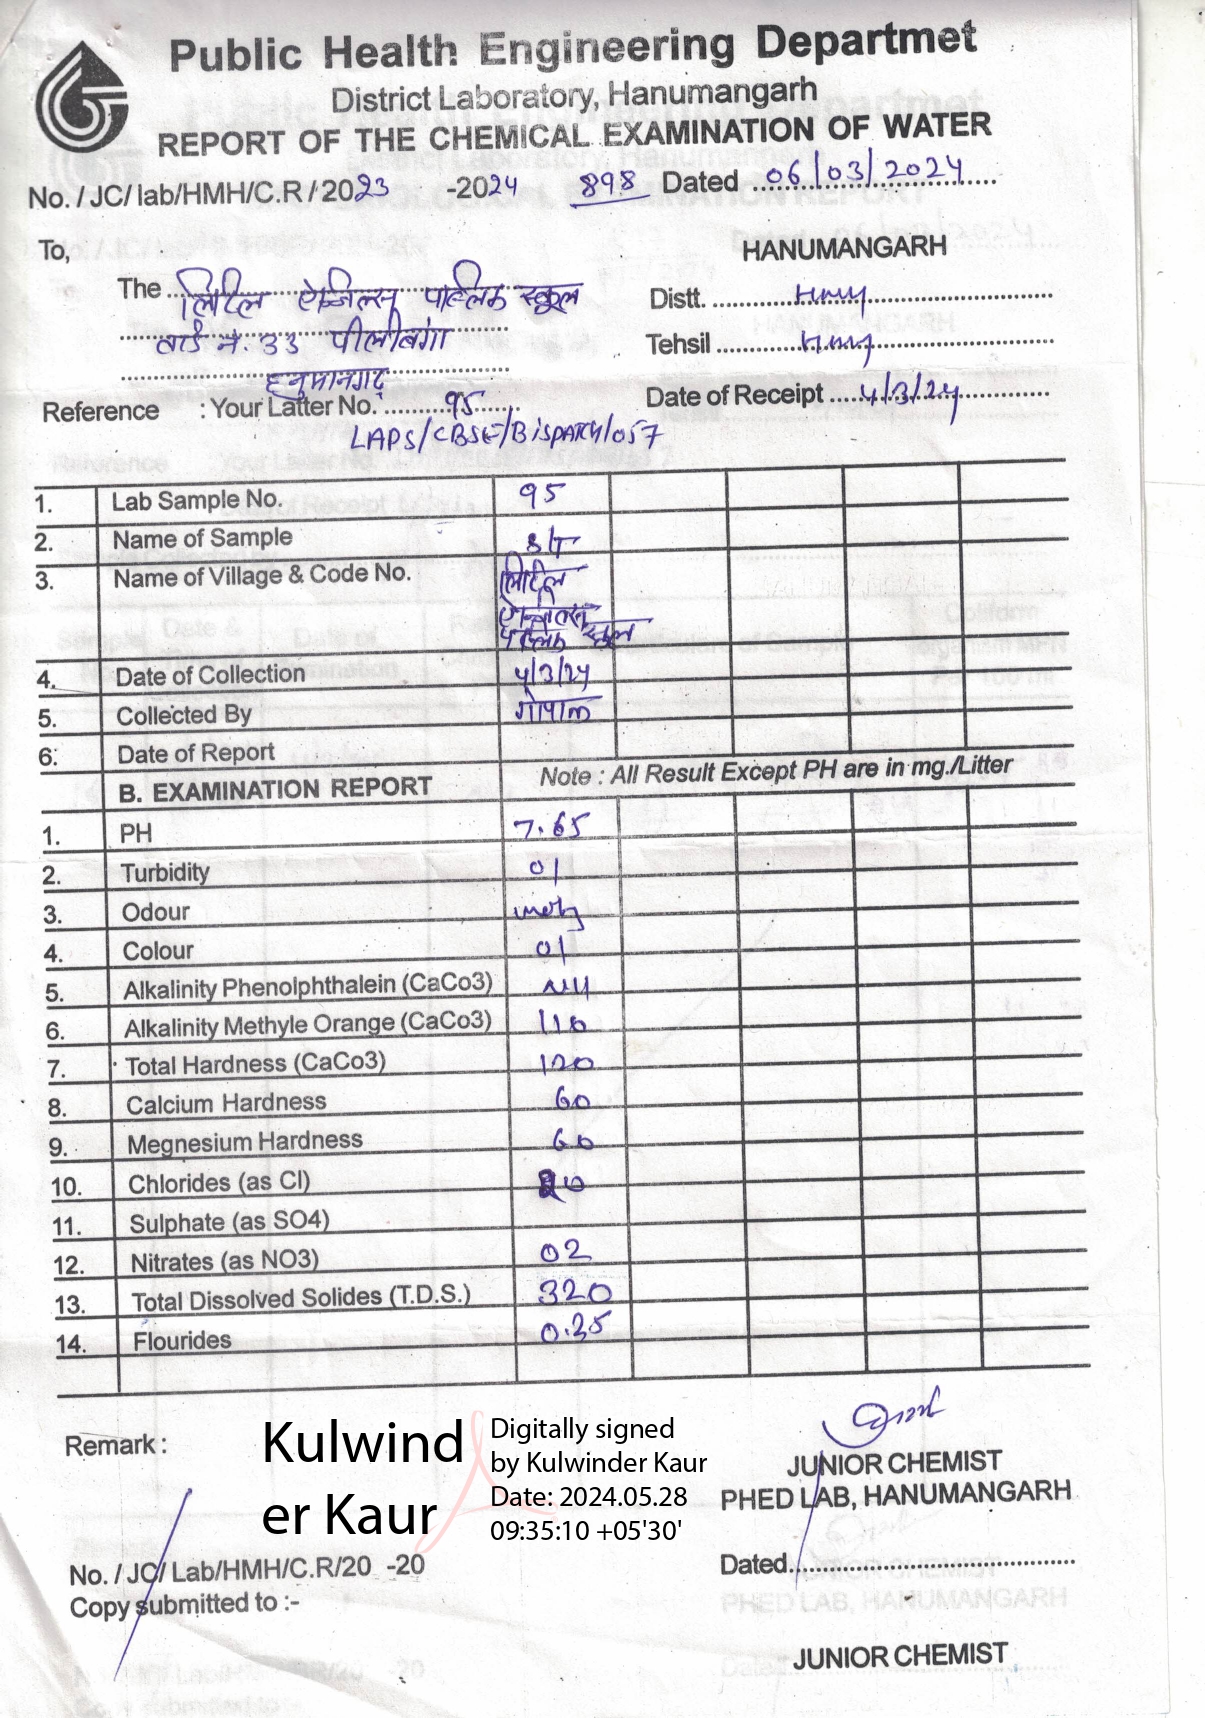 Public Health Engineering Departmet
District Laboratory, Hanumangarh
REPORT OF THE CHEMICAL EXAMINATION OF WATER
No. / JC/ lab/HMH/C.R / 2023 -2024 898 Dated 06/03/2024
To,
HANUMANGARH
The लिटिल ऐन्जिल्स पब्लिक स्कूल
Distt. HMG
वार्ड नं. 33 पीलीबंगा
Tehsil HMG
हनुमानगढ़
Date of Receipt 4/3/24
Reference : Your Latter No. 95
LAPS/CBSE/Dispatch/057
1. Lab Sample No. 95
2. Name of Sample S/T
3. Name of Village & Code No. लिटिल
ऐन्जिल्स
पब्लिक स्कूल
4. Date of Collection 4/3/24
5. Collected By गोपाल
6: Date of Report
B. EXAMINATION REPORT Note : All Result Except PH are in mg./Litter
1. PH 7.65
2. Turbidity 01
3. Odour
4. Colour 01
5. Alkalinity Phenolphthalein (CaCo3) Nil
6. Alkalinity Methyle Orange (CaCo3) 110
7. Total Hardness (CaCo3) 120
8. Calcium Hardness 60
9. Megnesium Hardness 60
10. Chlorides (as Cl)
11. Sulphate (as SO4)
12. Nitrates (as NO3) 02
13. Total Dissolved Solides (T.D.S.) 320
14. Flourides 0.35
Remark :
Kulwind
er Kaur
Digitally signed
by Kulwinder Kaur
Date: 2024.05.28
09:35:10 +05'30'
JUNIOR CHEMIST
PHED LAB, HANUMANGARH
No. / JC/ Lab/HMH/C.R/20 -20
Dated
Copy submitted to :-
JUNIOR CHEMIST